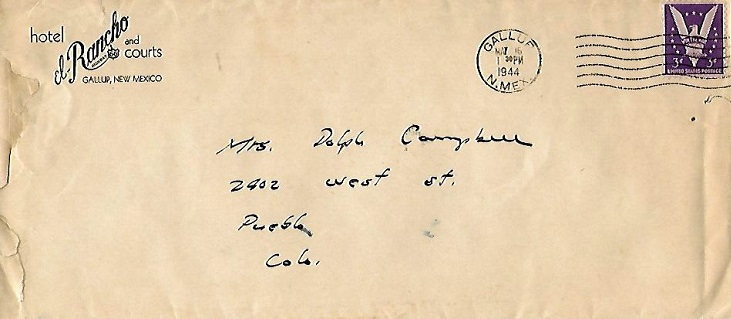 hotel
el Rancho
and
courts
GALLUP, NEW MEXICO
GALLUP
MAY 16
1 30 PM
1944
N.MEX.
3¢ 3¢
UNITED STATES POSTAGE
Mrs. Dolph Campbell
2902 west st.
Pueblo
Colo.